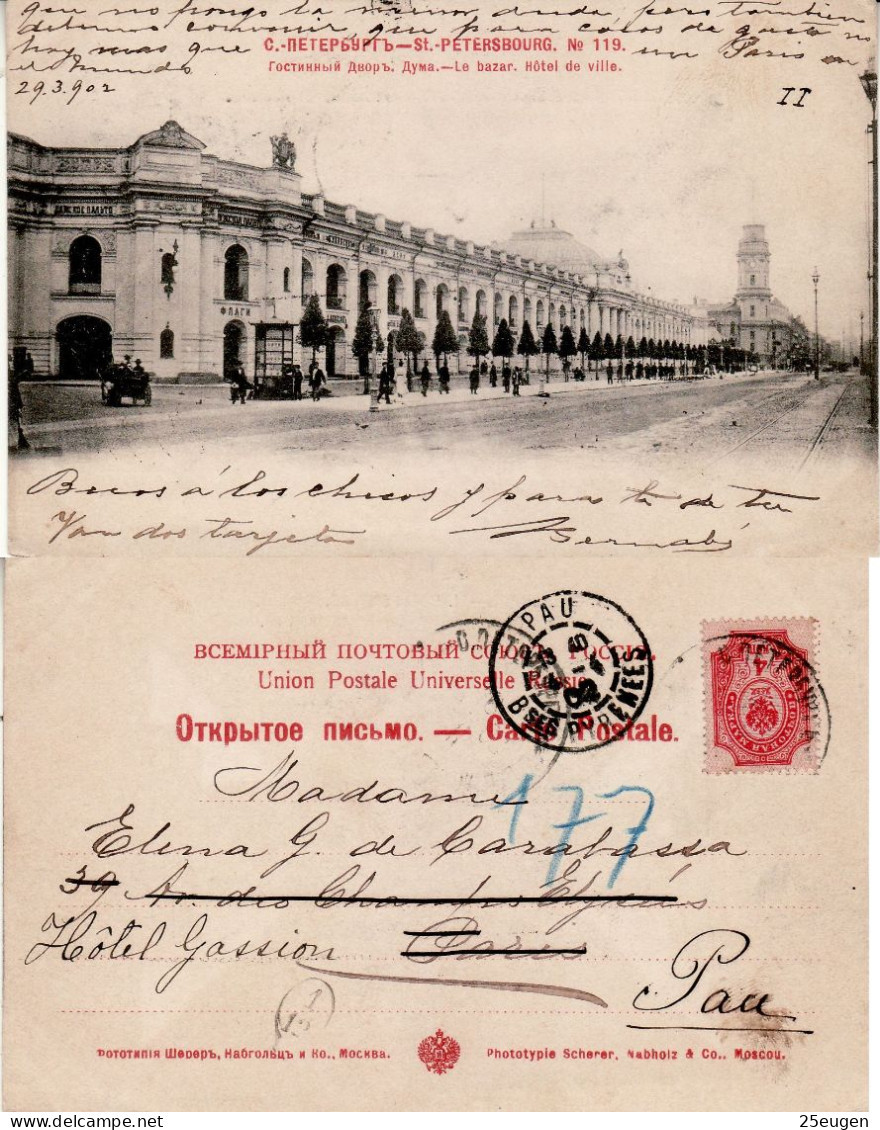 que no pongo la menor duda, pero tambien
debemos convenir que para cosas de gusto no
hay mas que un Paris en
el mundo
29.3.902
С.-ПЕТЕРБУРГЪ—St.-PETERSBOURG. № 119.
Гостинный Дворъ. Дума.—Le bazar. Hôtel de ville.
II
ФЛАГИ
Besos á los chicos y para ti de tu
Van dos tarjetas
Bernabé
ВСЕМІРНЫЙ ПОЧТОВЫЙ СОЮЗЪ. РОССІЯ.
Union Postale Universelle Russie
Открытое письмо. — Carte Postale.
PAU
BSES PYRENEES
4
177
Madame
Elena G. de Carabassa
39 Av. des Champs Elysées
Hôtel Gassion
Paris
Pau
Фототипія Шереръ, Набгольцъ и Ко., Москва.
Phototypie Scherer, Nabholz & Co., Moscou.
25eugen